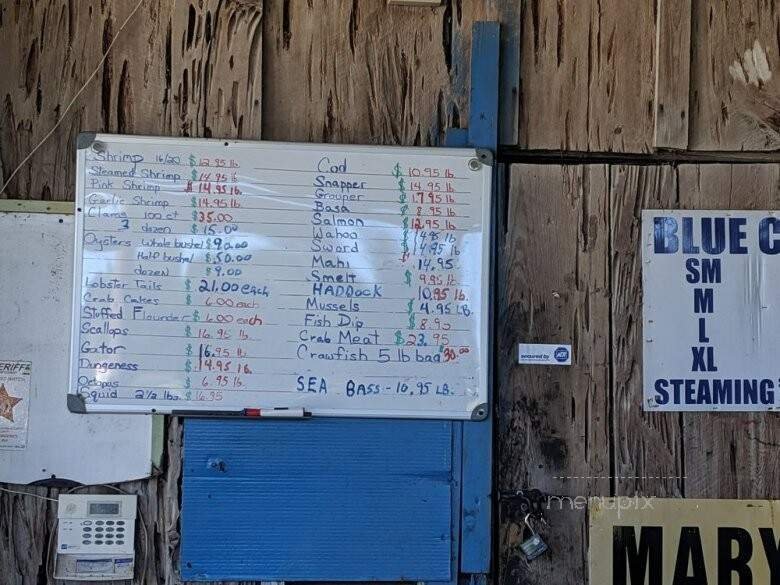 Shrimp 16/20 $12.95 lb
Steamed Shrimp $14.95 lb
Pink Shrimp $14.95 lb.
Garlic Shrimp $14.95 lb
Clams 100 ct $35.00
3 dozen $15.00
Oysters whole bushel $90.00
Half bushel $50.00
dozen $9.00
Lobster Tails $21.00 each
Crab Cakes $6.00 each
Stuffed Flounder $6.00 each
Scallops $16.95 lb
Gator $16.95 lb
Dungeness $14.95 lb
Octopus $6.95 lb
Squid 2½ lbs $16.95
Cod $10.95 lb
Snapper $14.95 lb
Grouper $17.95 lb
Basa $8.95 lb
Salmon $12.95 lb
Wahoo $14.95 lb
Sword $14.95 lb
Mahi 14.95
Smelt $9.95 lb
HADDock 10.95 lb.
Mussels $4.95 LB.
Fish Dip $8.95
Crab Meat $23.95
Crawfish 5 lb bag $30.00
SEA BASS - 10.95 LB.
BLUE C
SM
M
L
XL
STEAMING
secured by ADT
ERIFF
menupix
MARY